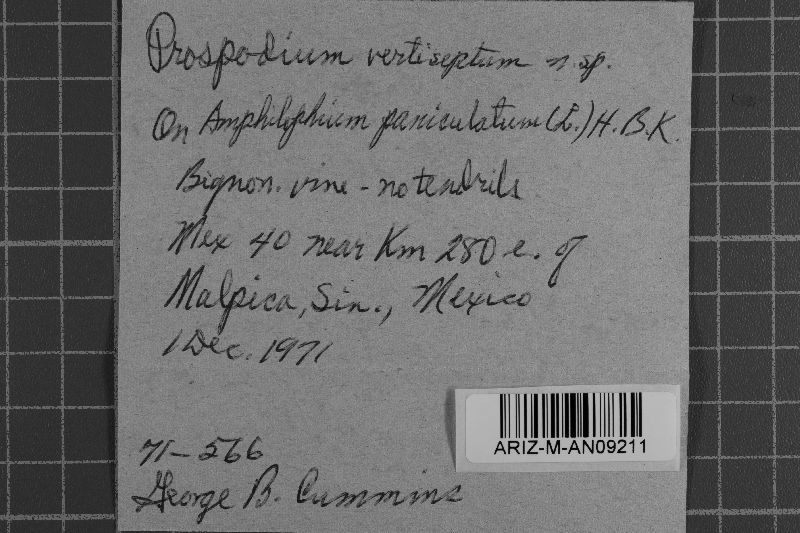 Prospodium vertiseptum n. sp.
On Amphilophium paniculatum (L.) H.B.K.
Bignon. vine - no tendrils
Mex 40 near Km 280 e. of
Malpica, Sin., Mexico
1 Dec. 1971
71-566
George B. Cummins
ARIZ-M-AN09211